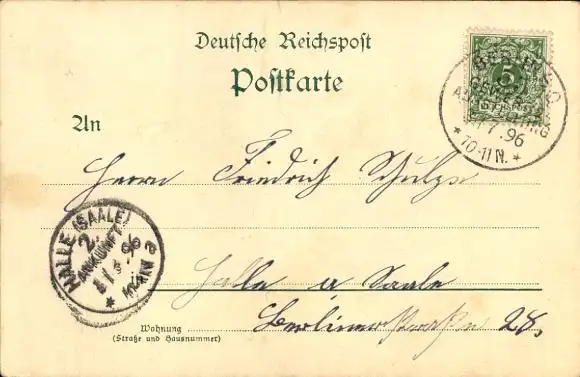 Deutsche Reichspost
Postkarte
An
Herrn Friedrich Schulze
Halle a Saale
Berlinerstraße 28.
Wohnung
(Straße und Hausnummer)
BERLIN S.O.
GEWERBE
AUSSTELLUNG
7.96
* 10-11 N. *
5
HALLE (SAALE)
2.
ANKUNFT
96